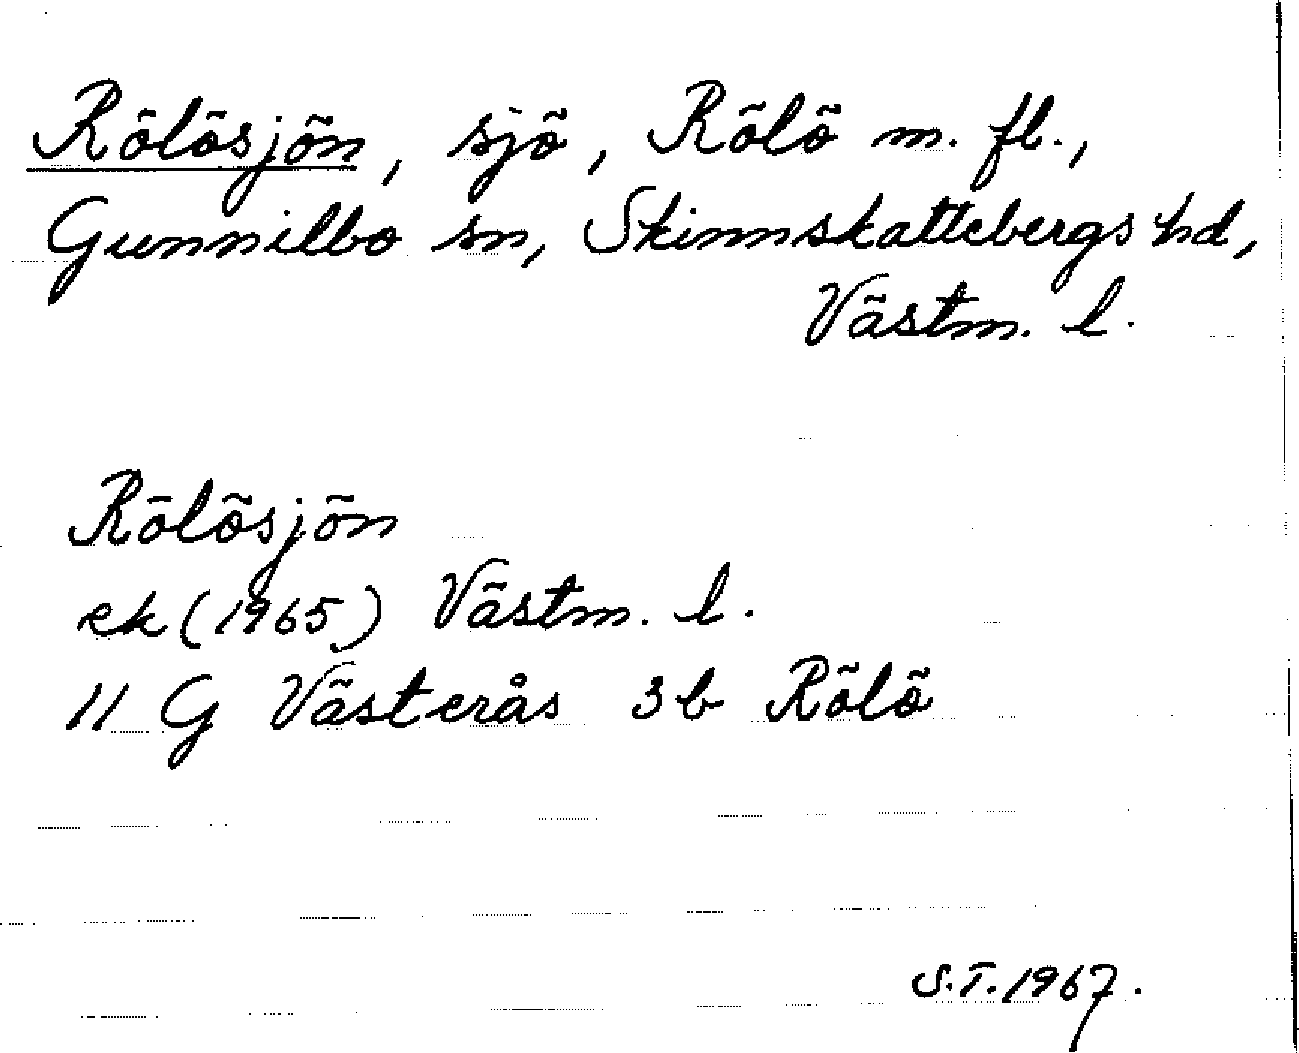 Rölösjön, sjö, Rölö m. fl.,
Gunnilbo sn, Skinnskattebergs hd,
Västm. l.
Rölösjön
ek (1965) Västm. l.
11 G Västerås 3b Rölö
S.T. 1967.